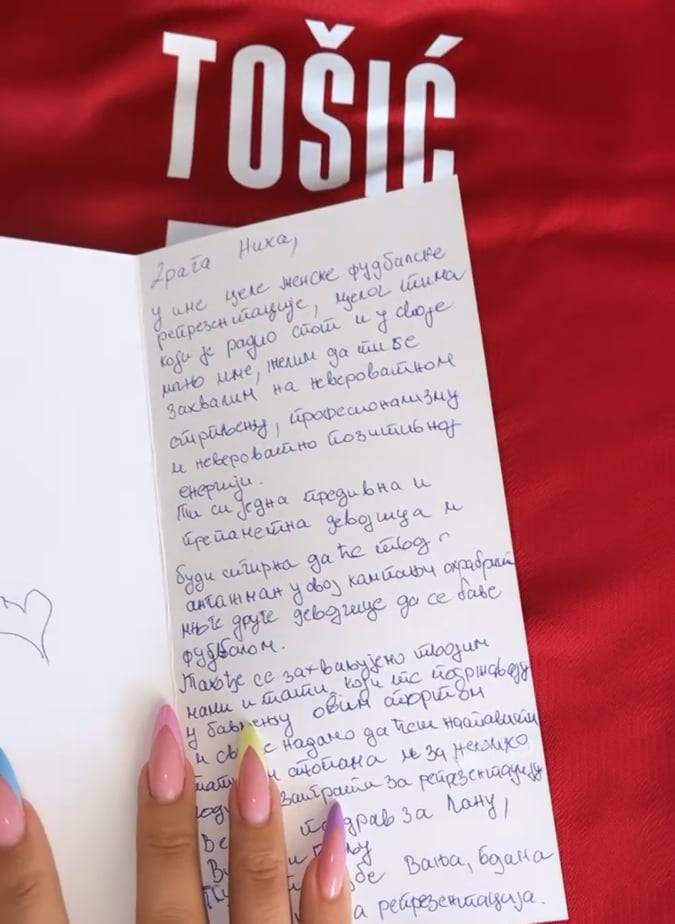 TOŠIĆ
Драга Ниха,
у име целе женске фудбалске
репрезентације, целог тима
који је радио спот и у своје
лично име, желим да ти се
захвалим на невероватном
стрпљењу, професионализму
и невероватно позитивној
енергији.
Ти си једна предивна и
препаметна девојчица и
буди сигурна да ће твој
ангажман у овој кампањи охрабрити
многе друге девојчице да се баве
фудбалом.
Такође се захваљујемо твојим
мами и тати, који те подржавају
у бављењу овим спортом
и надамо да ћеш наставити
стопама и за неколико
заиграти за репрезентацију
поздрав за Лану,
Ве
Вања, Бојана
репрезентација.